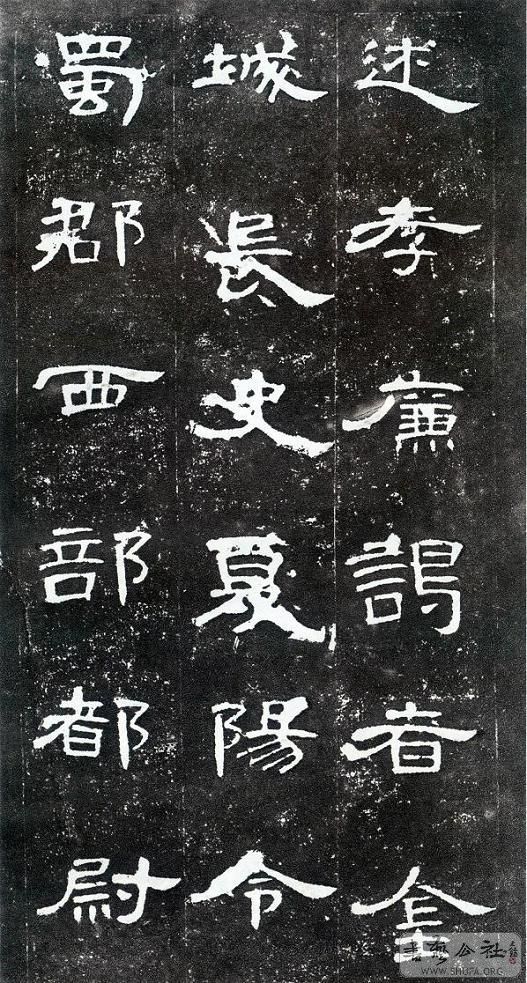 述孝廉謁者金
城長史夏陽令
蜀郡西部都尉
公社
WWW.SHUFA.ORG